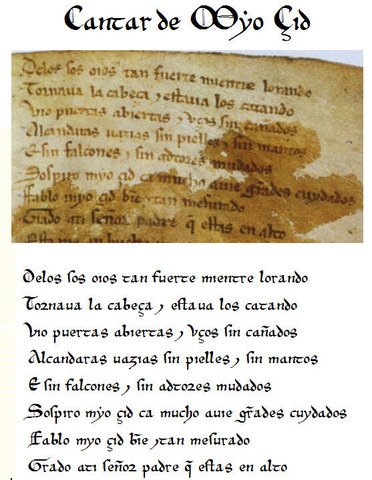 Cantar de Myo Çid
Delos sos oios tan fuerte mientre lorando
Tornaua la cabeça , estaua los catando
Vio puertas abiertas , vços sin cañados
Alcandaras uazias sin pielles , sin mantos
E sin falcones , sin adtores mudados
Sospiro myo çid ca mucho auie grãdes cuydados
Fablo myo çid
Grado ati señor padre q̃ estas en alto
Delos sos oios tan fuerte mientre lorando
Tornaua la cabeça , estaua los catando
Vio puertas abiertas , vços sin cañados
Alcandaras uazias sin pielles , sin mantos
E sin falcones , sin adtores mudados
Sospiro mẏo çid ca mucho auie gr̃ades cuẏdados
Fablo mẏo çid bĩe , tan mesurado
Grado ati señor padre q̃ estas en alto